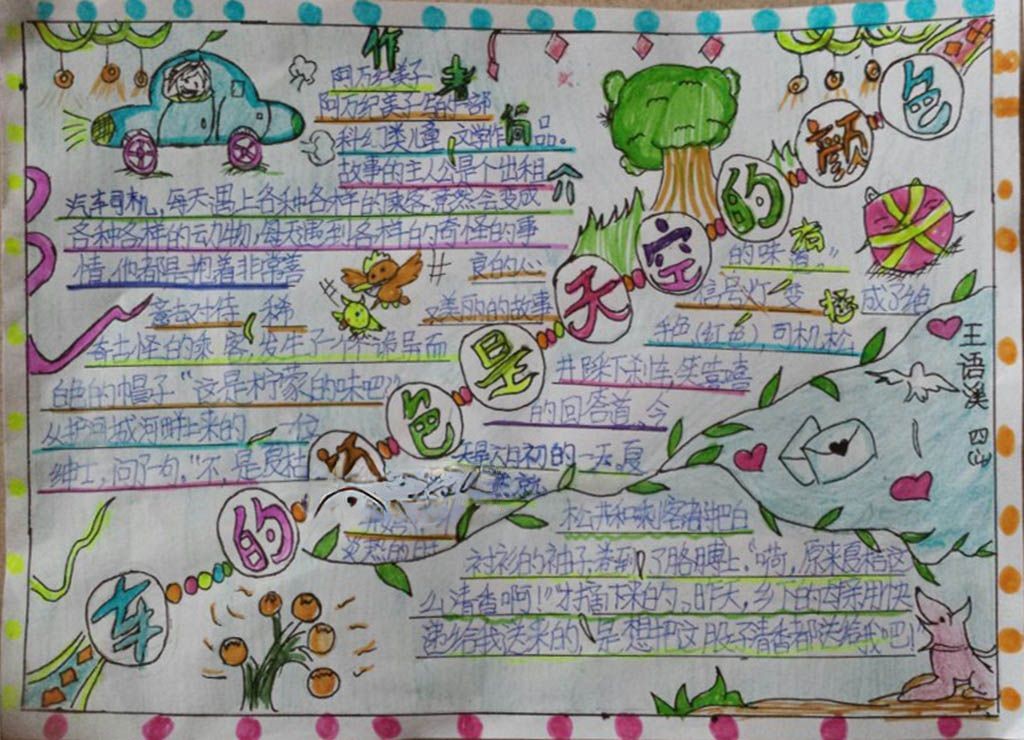 车的
色是天空的颜色
作者简介
阿万纪美子
阿万纪美子写的一部
科幻类儿童文学作品。
故事的主人公是个出租
汽车司机,每天遇上各种各样的乘客,竟然会变成
各种各样的动物,每天遇到各样的奇怪的事
情,他都是抱着非常善
良的心
意去对待
稀
美丽的故事
奇古怪的乘客,发生了一个个诡异而
白色的帽子“这是柠檬的味吧?”
从护城河畔上来的一位
绅士,问了句。“不,是夏桔
的味道。”
信号灯变成了绝
色(红色)司机松
井踩下刹车,笑嘻嘻
的回答道,今
天是六月初的一天。夏
松井和乘客都把白
衬衫的袖子卷到了胳膊上。“嗬,原来夏桔这
么清香啊!”才摘下来的。昨天,乡下的母亲用快
递给我送来的,是想把这股子清香都送给我吧!
王语溪
四